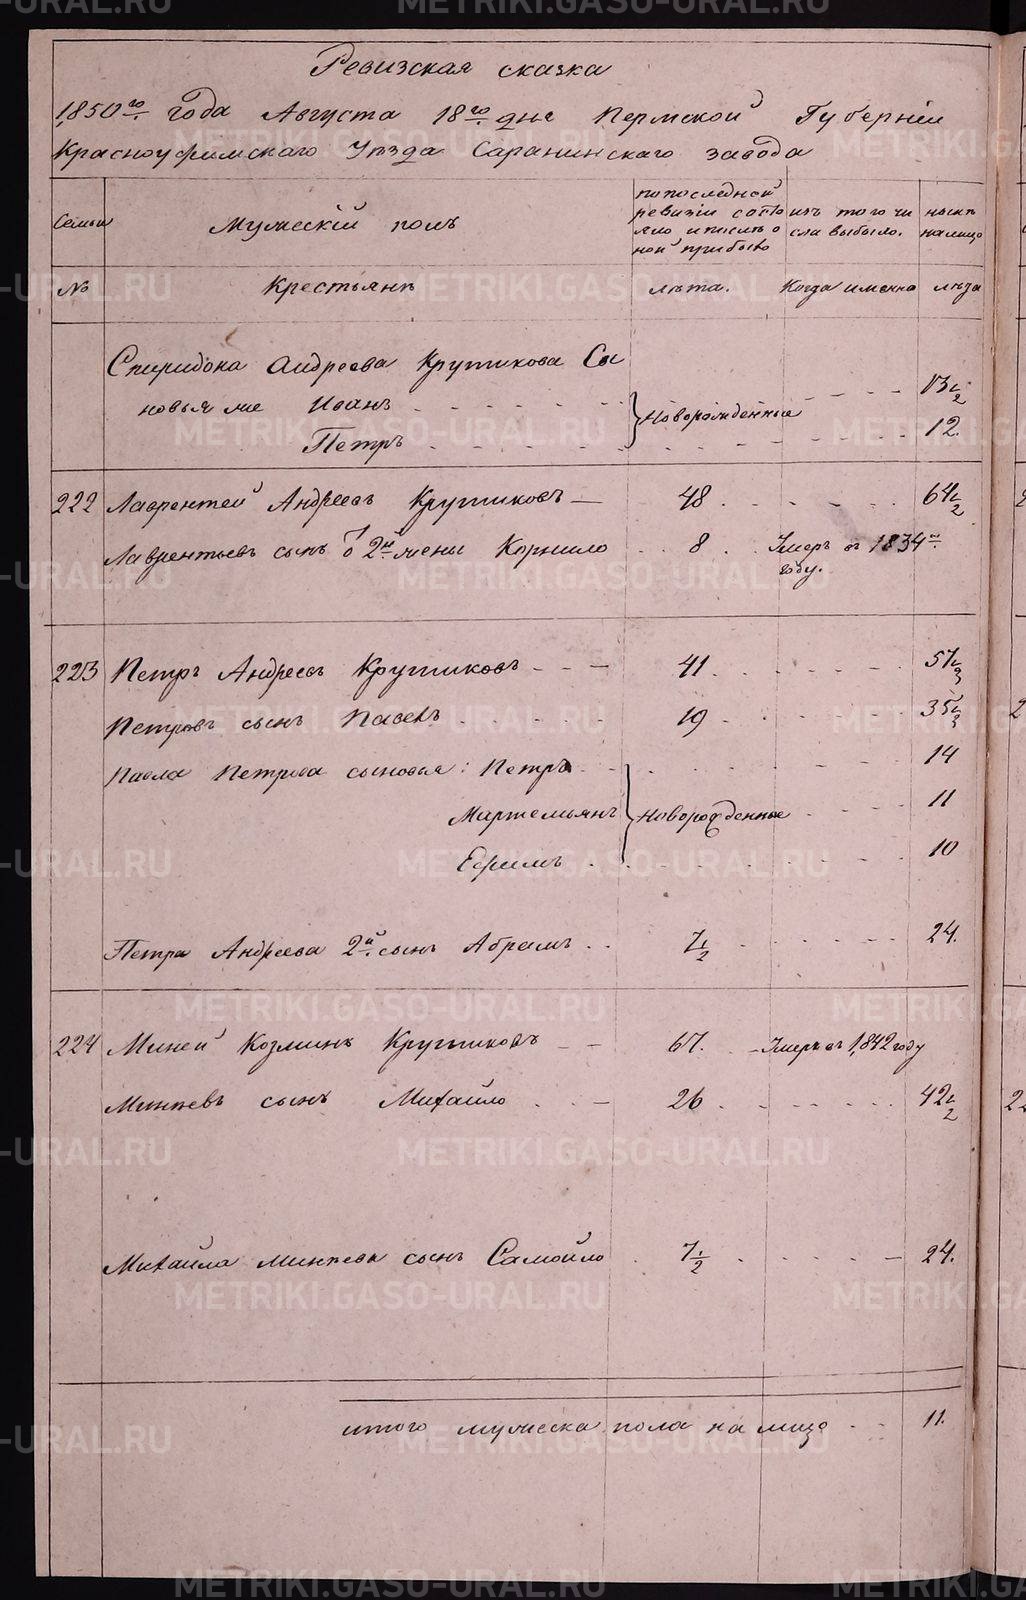 Ревизская сказка
1850го года Августа 18го дня Пермской Губернiи
Красноуфимскаго Уѣзда Саранинскаго завода
Семьи
Мужескiй полъ
по последней ревизiи состояло и после оной прибыло
изъ того числа выбыло.
нынѣ на лицо
№
Крестьянъ
лѣта.
Когда именно
лѣта
Спиридона Андреева Крутикова Сы
новья же Иванъ Новорожденные 13 1/2
Петръ 12.
222 Лаврентей Андреевъ Крутиковъ 48 64 1/2
Лаврентьевъ сынъ о 2й жены Корнило 8 Умеръ въ 1834м году.
223 Петръ Андреевъ Крутиковъ 41 57 1/2
Петровъ сынъ Павелъ 19 35 1/2
Павла Петрова сыновья: Петръ 14
Мартемьянъ Новорожденные 11
Ефимъ 10
Петра Андреева 2й сынъ Абрамъ 7 1/2 24.
224 Миней Козминъ Крутиковъ 67. Умеръ въ 1842 году
Минѣевъ сынъ Михайло 26 42 1/2
Михайла Минѣева сынъ Самойло 7 1/2 24.
итого мужеска пола на лицо 11.
METRIKI.GASO-URAL.RU